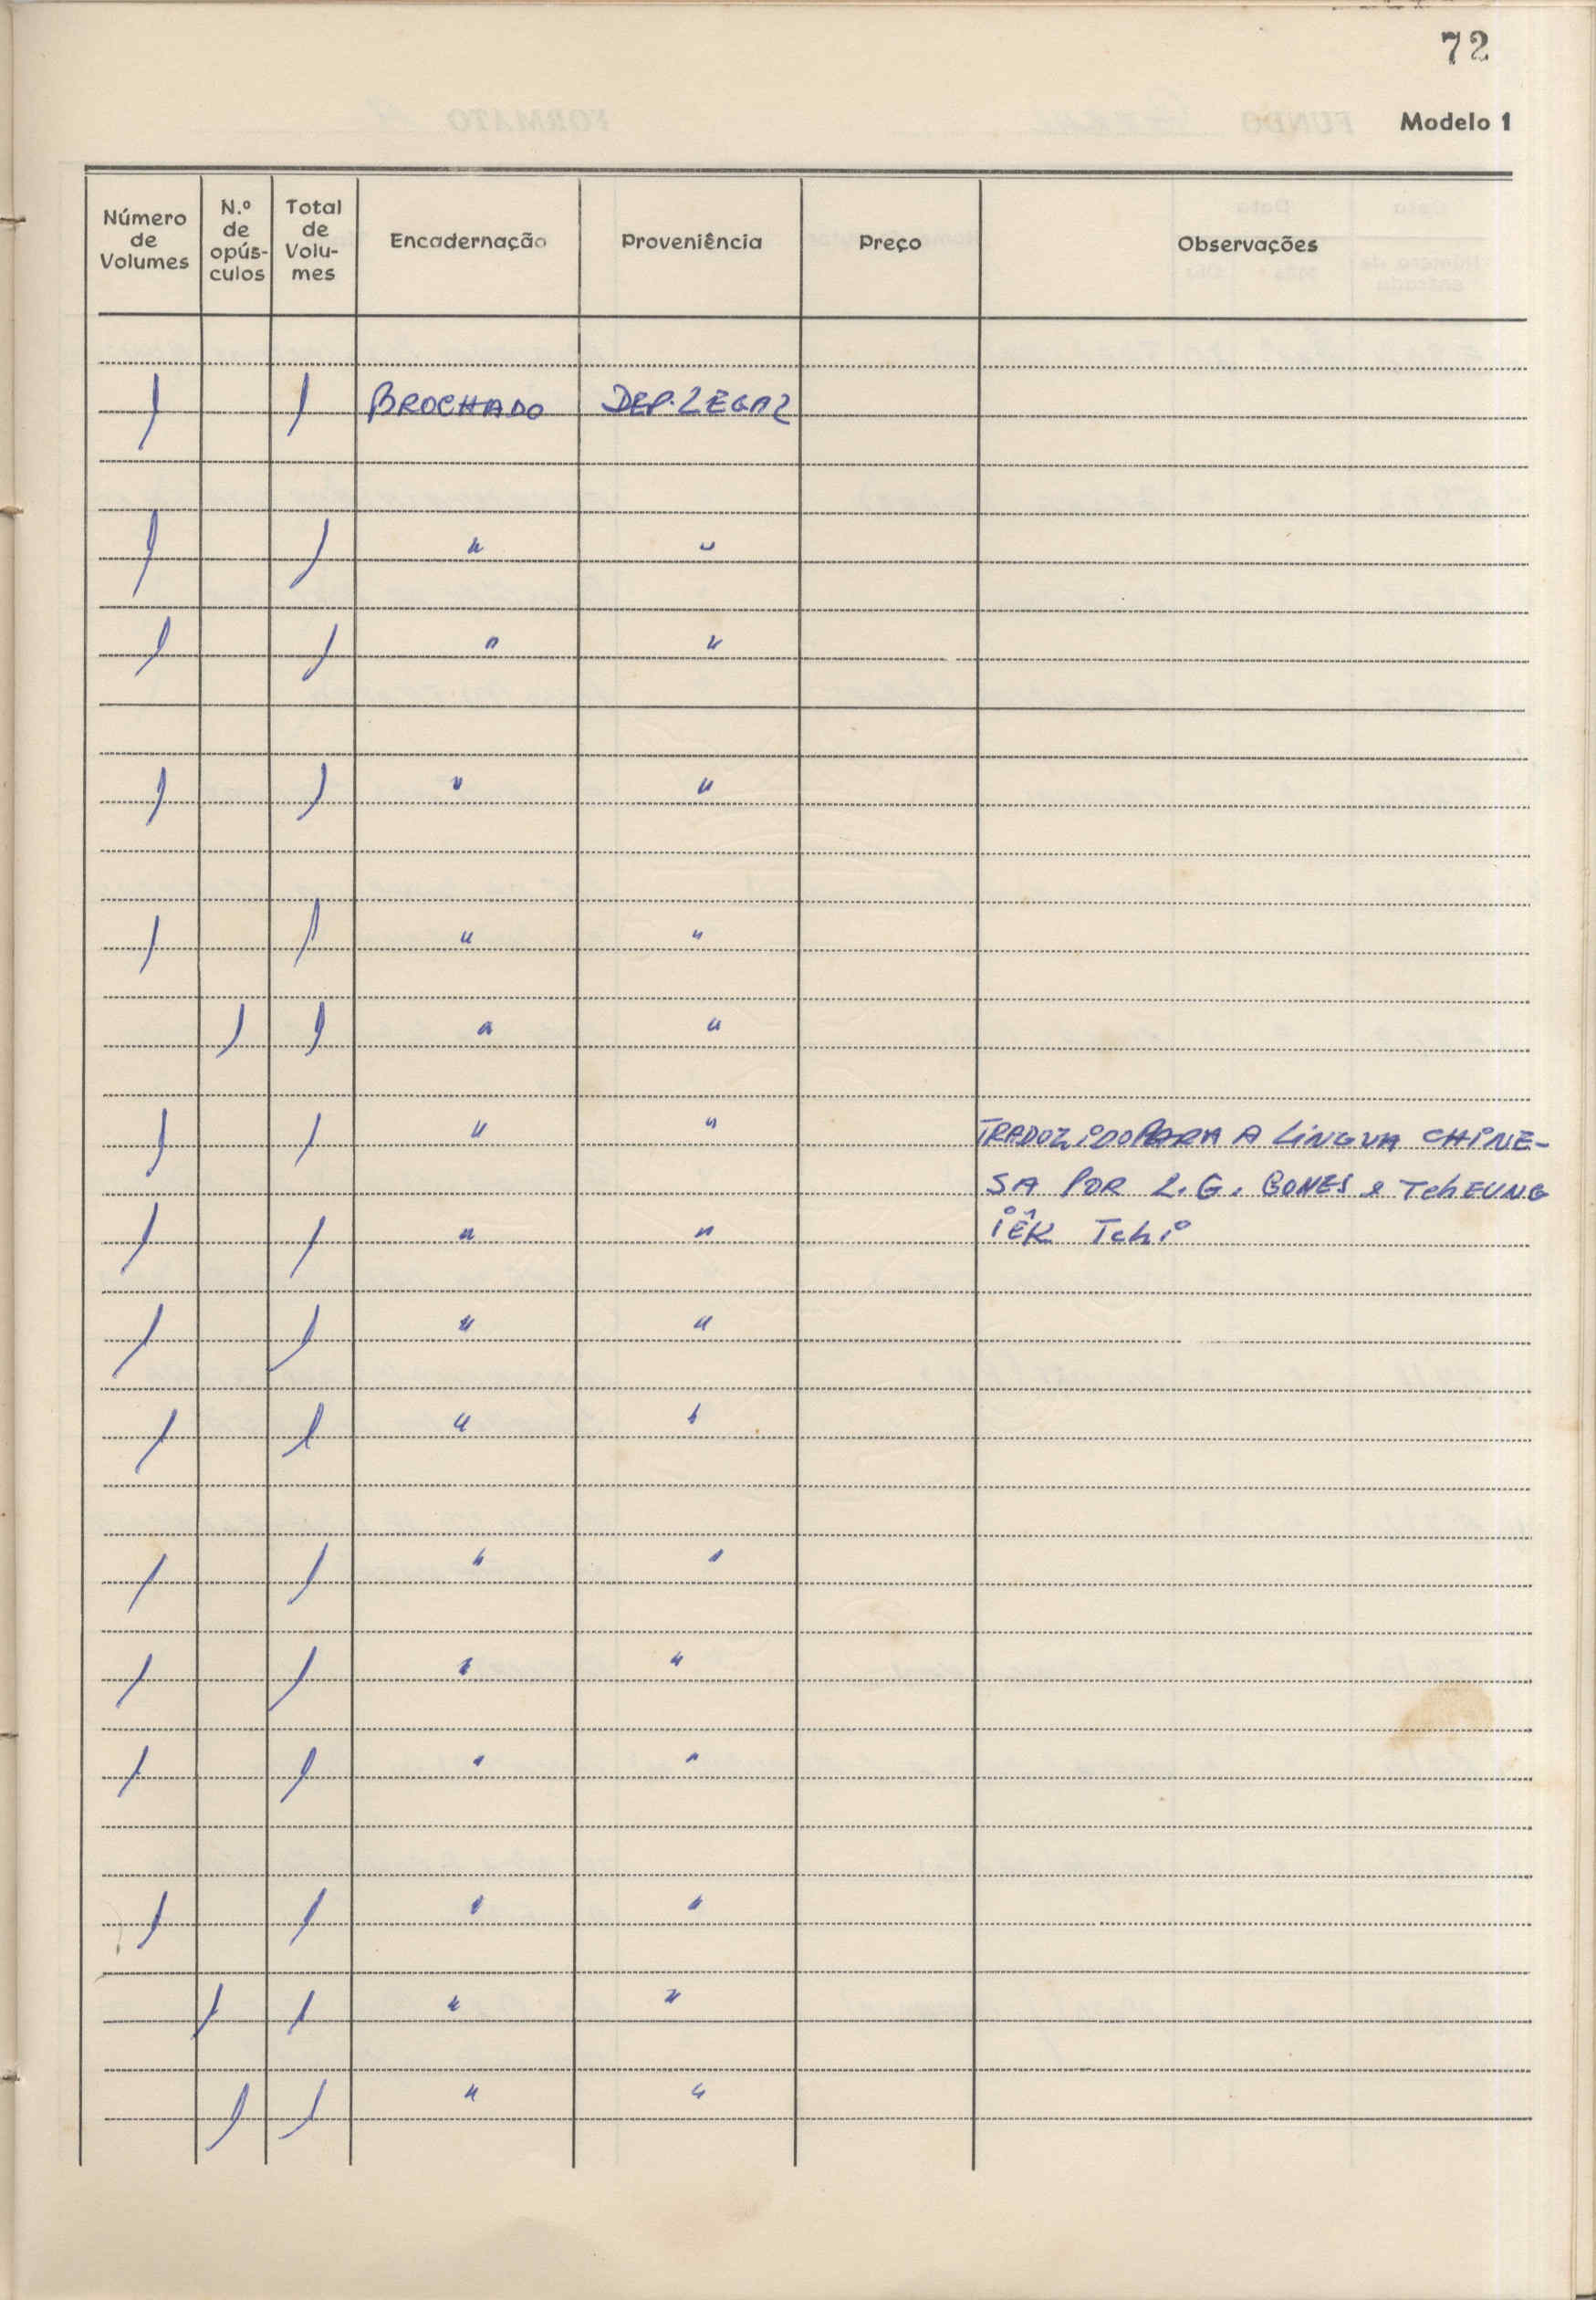 72
Modelo 1
Número de Volumes | N.º de opús-culos | Total de Volu-mes | Encadernação | Proveniência | Preço | Observações
1 | | 1 | BROCHADO | DEP. LEGAL
1 | | 1 | " | "
1 | | 1 | " | "
1 | | 1 | " | "
1 | | 1 | " | "
| 1 | 1 | " | "
1 | | 1 | " | " | | TRADUZIDO PARA A LÍNGUA CHINE-
SA POR L. G. GOMES e TchEUNG
1 | | 1 | " | " | | IÊK Tchi
1 | | 1 | " | "
1 | | 1 | " | "
1 | | 1 | " | "
1 | | 1 | " | "
1 | | 1 | " | "
1 | | 1 | " | "
| 1 | 1 | " | "
| 1 | 1 | " | "